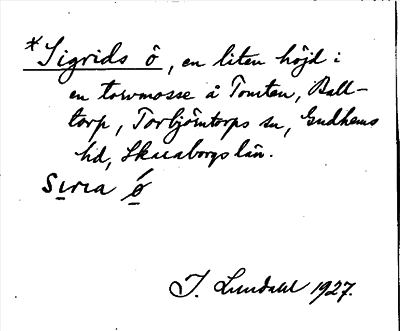 *Sigrids ö, en liten höjd i
en torvmosse å Tomten, Ball-
torp, Torbjörntorps sn, Gudhems
hd, Skaraborgs län.
Sı̣rıa ọ́
I. Lundahl 1927.